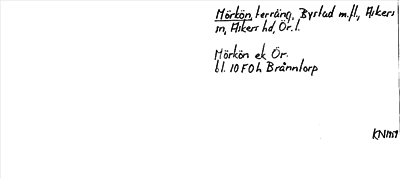 Mörkön, terräng, Bystad m.fl., Askers
sn, Askers hd, Ör.l.
Mörkön ek Ör.
bl. 10F0h Bränntorp